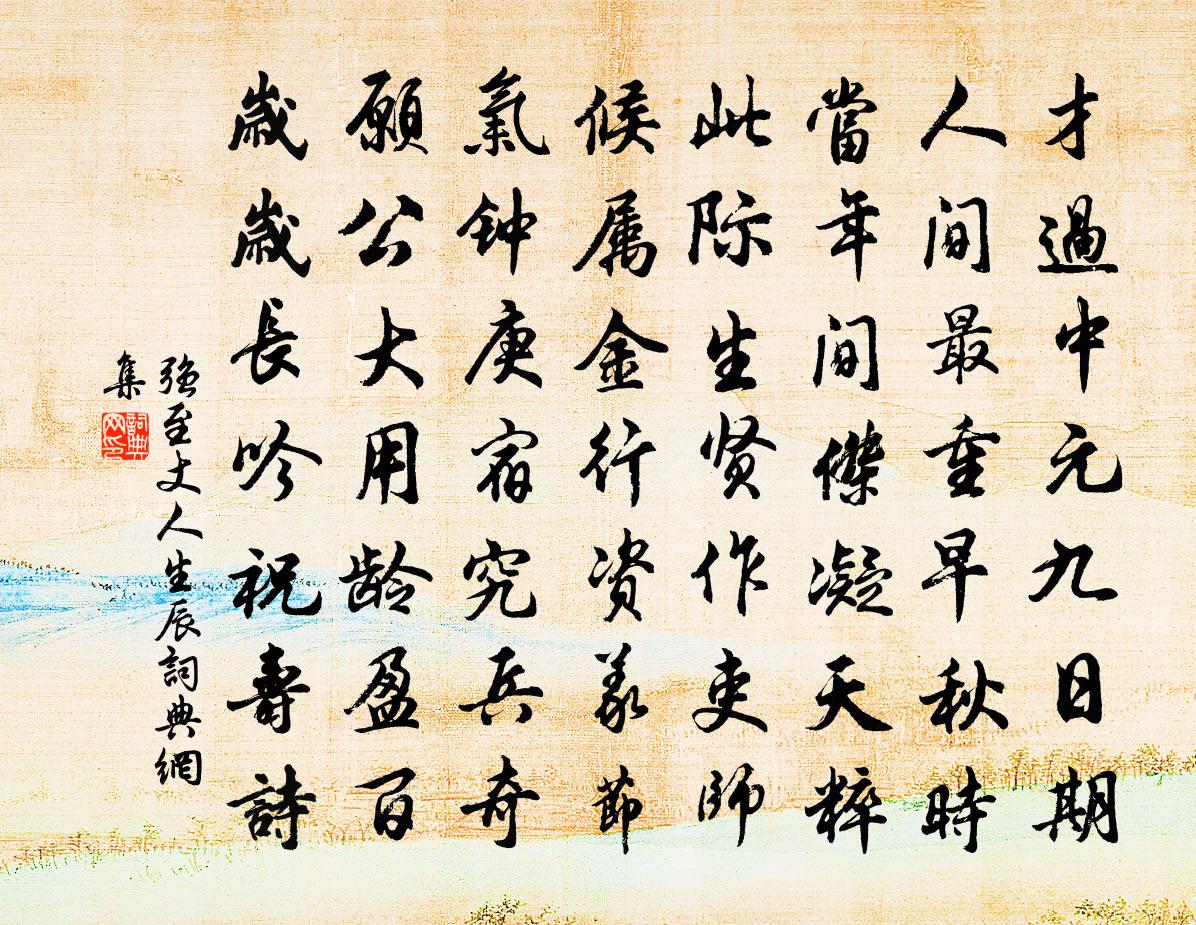 才過中元九日期
人間最重早秋時
當年間傑凝天粹
此际生贤作吏師
候属金行资義節
氣钟庚宿究兵奇
願公大用龄盈百
歲歲長吟祝壽詩
強至丈人生辰詞典網
集
詞典
网印